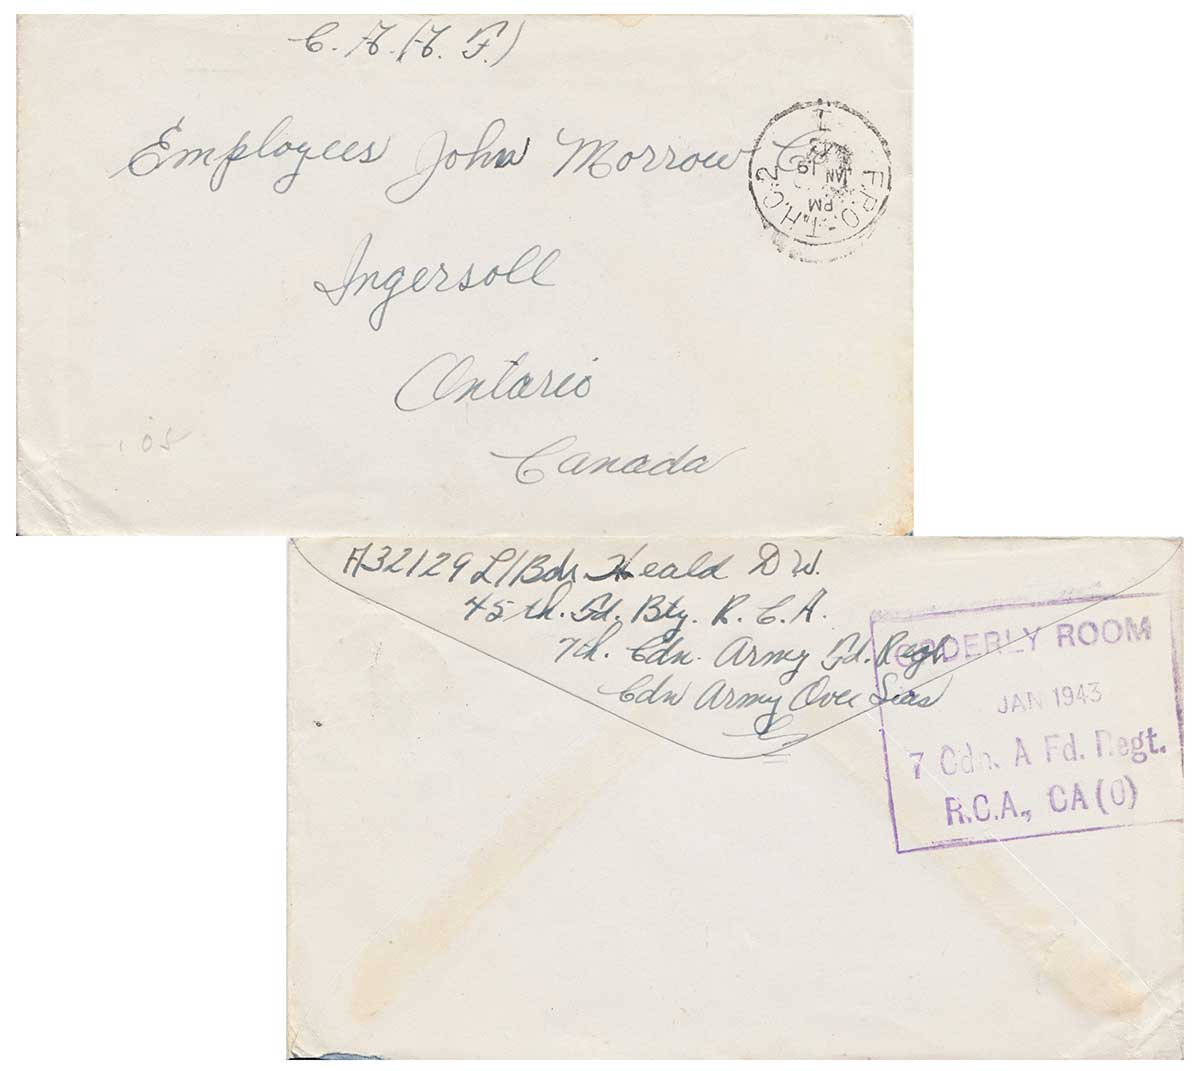 C. A. (A. F.)
Employees John Morrow Co.
Ingersoll
Ontario
Canada
.05
F.P.O.-T.H.C.2
1
PM
JAN 19
A32129 L/Bdr Heald D W.
45th. Fd. Bty. R. C. A.
7th. Cdn. Army Fd. Regt
Cdn Army Over Seas
ORDERLY ROOM
JAN 1943
7 Cdn. A Fd. Regt.
R.C.A., CA (O)